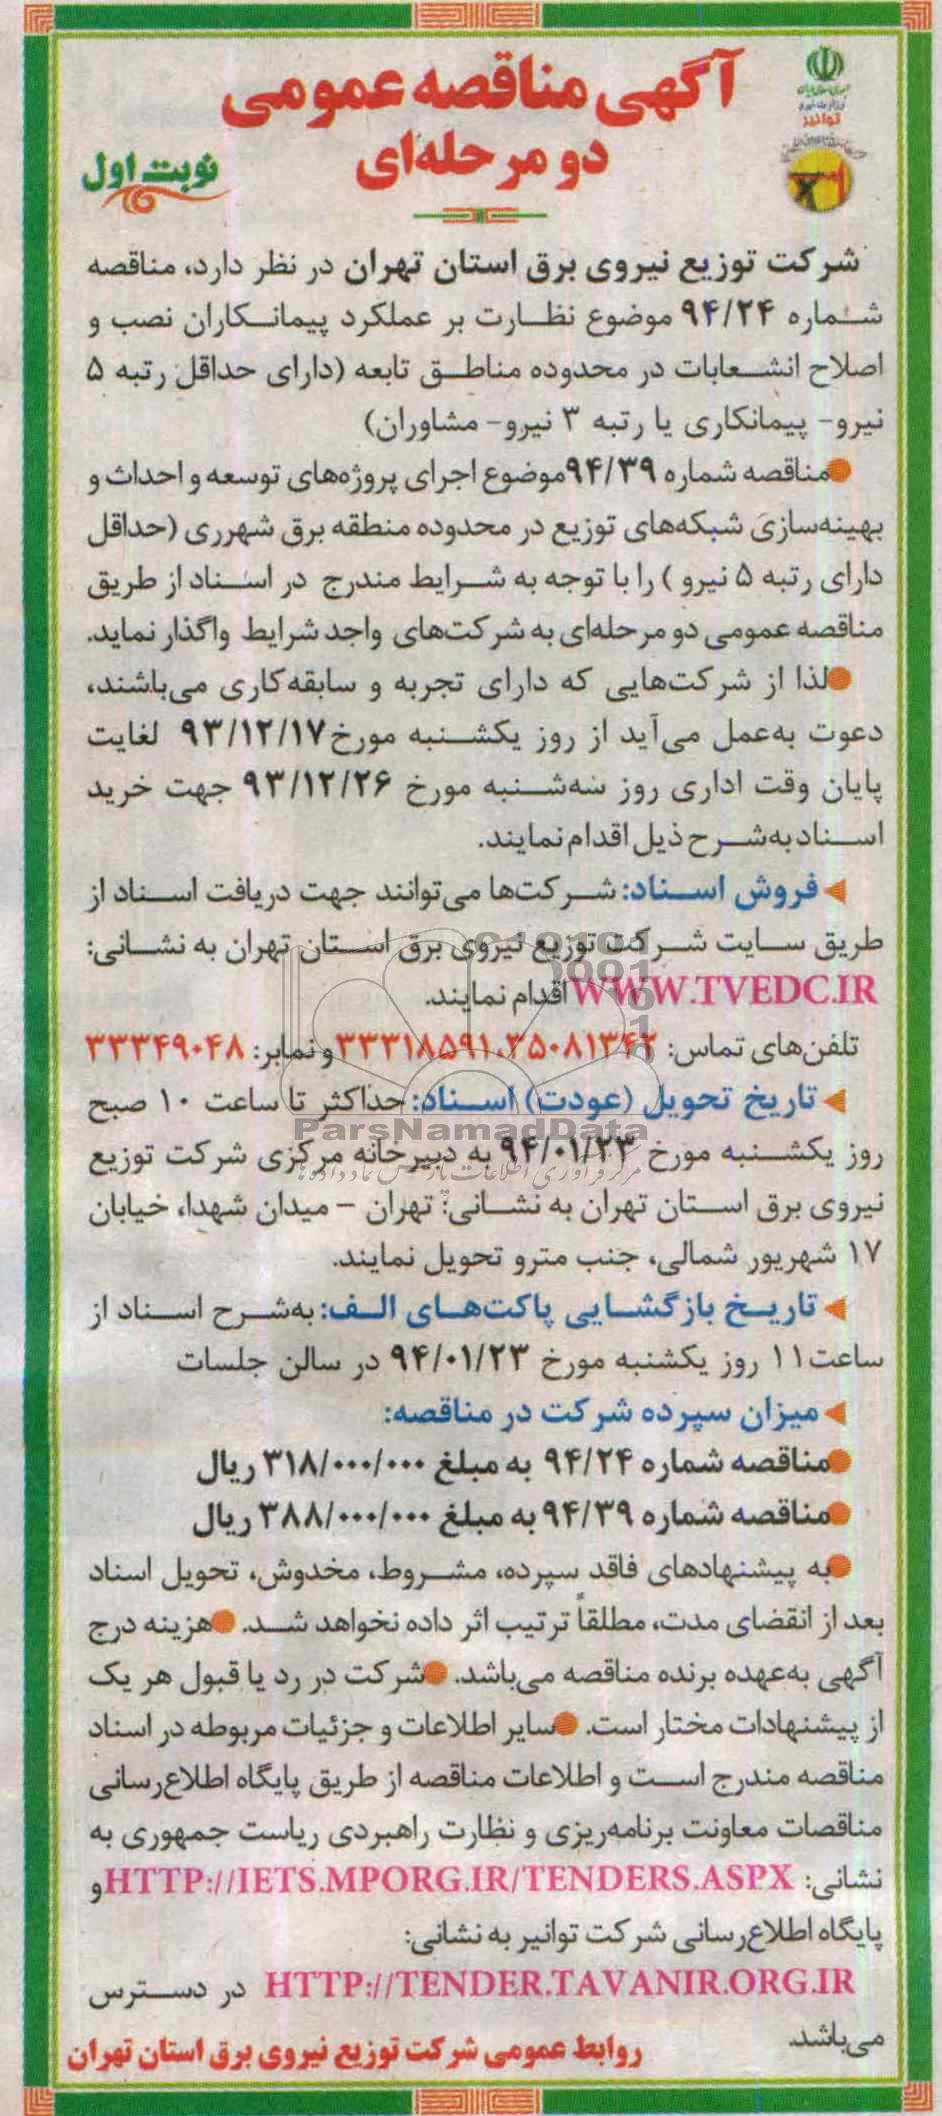 آگهی مناقصه عمومی
دو مرحله‌ای
نوبت اول
توانیر
شرکت توزیع نیروی برق استان تهران در نظر دارد، مناقصه
شماره ۹۴/۲۴ موضوع نظارت بر عملکرد پیمانکاران نصب و
اصلاح انشعابات در محدوده مناطق تابعه (دارای حداقل رتبه ۵
نیرو- پیمانکاری یا رتبه ۳ نیرو- مشاوران)
●مناقصه شماره ۹۴/۳۹موضوع اجرای پروژه‌های توسعه و احداث و
بهینه‌سازی شبکه‌های توزیع در محدوده منطقه برق شهرری (حداقل
دارای رتبه ۵ نیرو ) را با توجه به شرایط مندرج در اسناد از طریق
مناقصه عمومی دو مرحله‌ای به شرکت‌های واجد شرایط واگذار نماید.
●لذا از شرکت‌هایی که دارای تجربه و سابقه کاری می‌باشند،
دعوت به‌عمل می‌آید از روز یکشنبه مورخ۹۳/۱۲/۱۷ لغایت
پایان وقت اداری روز سه‌شنبه مورخ ۹۳/۱۲/۲۶ جهت خرید
اسناد به‌شرح ذیل اقدام نمایند.
فروش اسناد: شرکت‌ها می‌توانند جهت دریافت اسناد از
طریق سایت شرکت توزیع نیروی برق استان تهران به نشانی:
WWW.TVEDC.IR اقدام نمایند.
تلفن‌های تماس: ۳۵۰۸۱۳۴۲ ،۳۳۳۱۸۵۹۱ و نمابر: ۳۳۳۴۹۰۴۸
تاریخ تحویل (عودت) اسناد: حداکثر تا ساعت ۱۰ صبح
ParsNamadData
روز یکشنبه مورخ ۹۴/۰۱/۲۳ به دبیرخانه مرکزی شرکت توزیع
نیروی برق استان تهران به نشانی: تهران - میدان شهدا، خیابان
۱۷ شهریور شمالی، جنب مترو تحویل نمایند.
تاریخ بازگشایی پاکت‌های الف: به‌شرح اسناد از
ساعت۱۱ روز یکشنبه مورخ ۹۴/۰۱/۲۳ در سالن جلسات
میزان سپرده شرکت در مناقصه:
●مناقصه شماره ۹۴/۲۴ به مبلغ ۳۱۸/۰۰۰/۰۰۰ ریال
●مناقصه شماره ۹۴/۳۹ به مبلغ ۳۸۸/۰۰۰/۰۰۰ ریال
●به پیشنهادهای فاقد سپرده، مشروط، مخدوش، تحویل اسناد
بعد از انقضای مدت، مطلقاً ترتیب اثر داده نخواهد شد. ●هزینه درج
آگهی به‌عهده برنده مناقصه می‌باشد. ●شرکت در رد یا قبول هر یک
از پیشنهادات مختار است. ●سایر اطلاعات و جزئیات مربوطه در اسناد
مناقصه مندرج است و اطلاعات مناقصه از طریق پایگاه اطلاع‌رسانی
مناقصات معاونت برنامه‌ریزی و نظارت راهبردی ریاست جمهوری به
نشانی: HTTP://IETS.MPORG.IR/TENDERS.ASPX و
پایگاه اطلاع‌رسانی شرکت توانیر به نشانی:
HTTP://TENDER.TAVANIR.ORG.IR در دسترس
می‌باشد.
روابط عمومی شرکت توزیع نیروی برق استان تهران